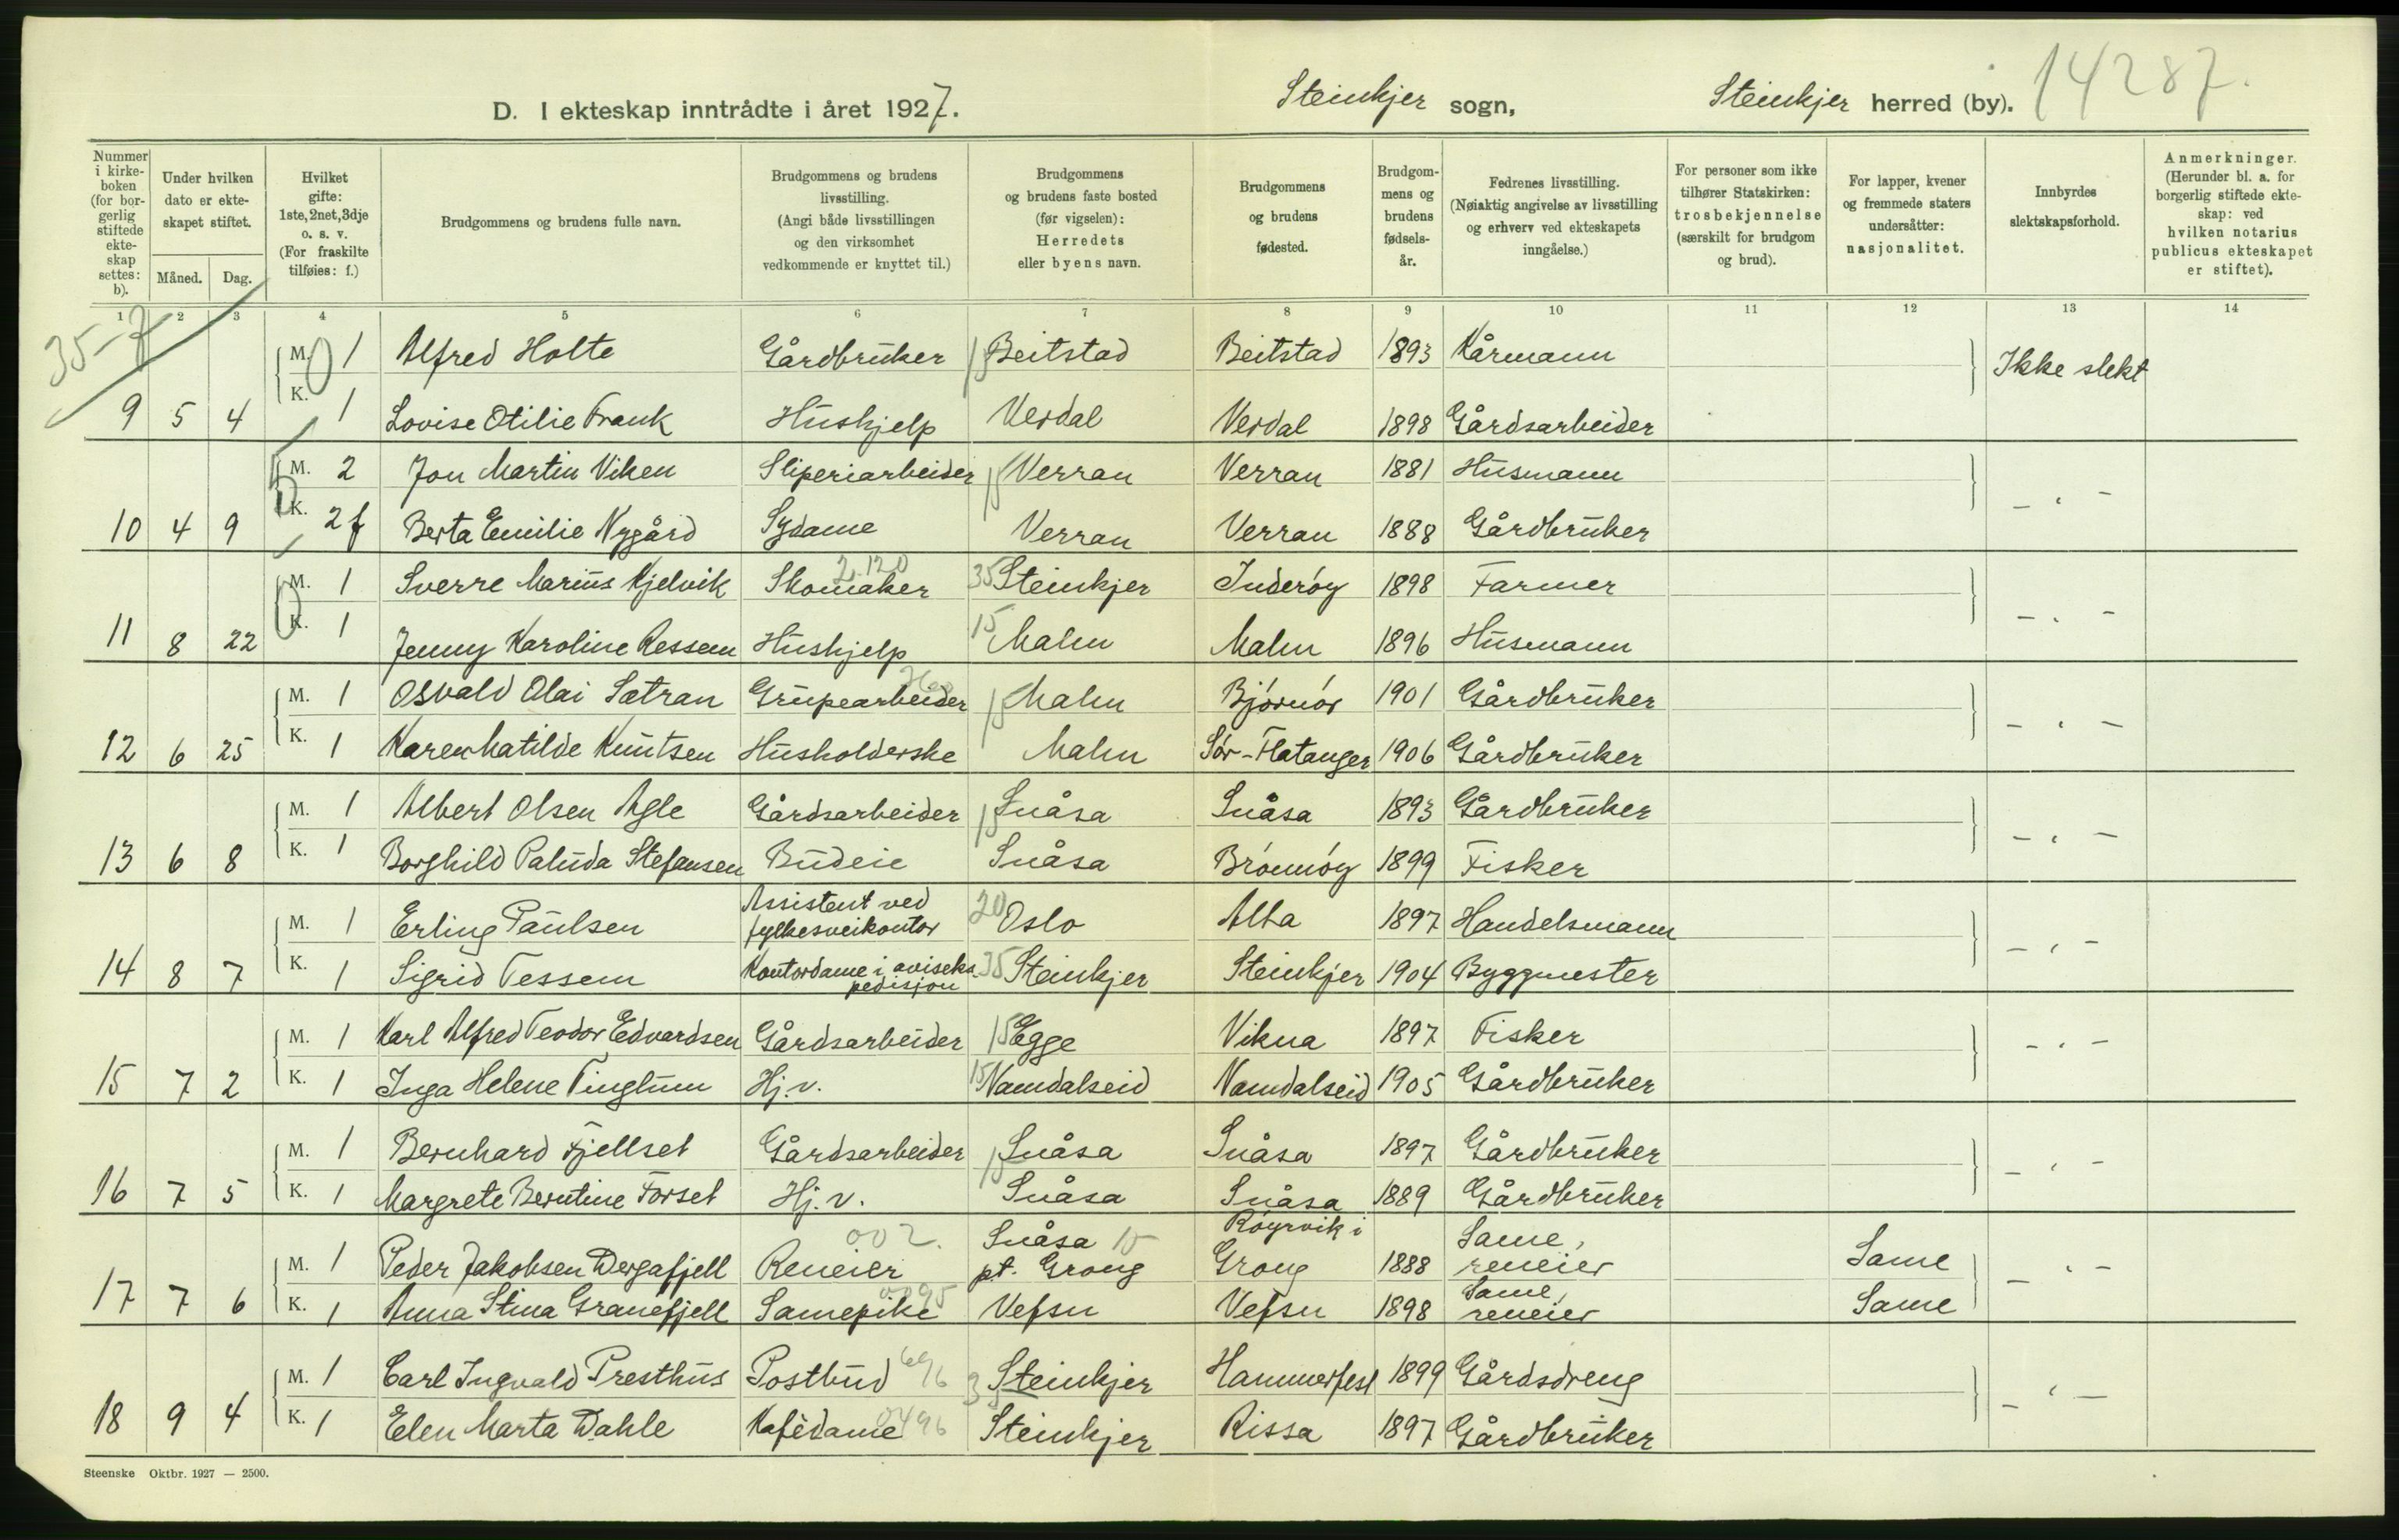 14287.
D. I ekteskap inntrådte i året 1927. Steinkjer sogn, Steinkjer herred (by).
Nummer i kirkeboken (for borgerlig stiftede ekteskap settes: b).
Under hvilken dato er ekteskapet stiftet.
Måned. Dag.
Hvilket gifte: 1ste, 2net, 3dje o. s. v. (For fraskilte tilføies: f.)
Brudgommens og brudens fulle navn.
Brudgommens og brudens livsstilling. (Angi både livsstillingen og den virksomhet vedkommende er knyttet til.)
Brudgommens og brudens faste bosted (før vigselen): Herredets eller byens navn.
Brudgommens og brudens fødested.
Brudgommens og brudens fødselsår.
Fedrenes livsstilling. (Nøiaktig angivelse av livsstilling og erhverv ved ekteskapets inngåelse.)
For personer som ikke tilhører Statskirken: trosbekjennelse (særskilt for brudgom og brud).
For lapper, kvener og fremmede staters undersåtter: nasjonalitet.
Innbyrdes slektskapsforhold.
Anmerkninger. (Herunder bl. a. for borgerlig stiftede ekteskap: ved hvilken notarius publicus ekteskapet er stiftet).
1 2 3 4 5 6 7 8 9 10 11 12 13 14
35-7
M. 1 Alfred Holte Gårdbruker 15 Beitstad Beitstad 1893 Kårmann Ikke slekt
9 5 4 K. 1 Lovise Otilie Frank Hushjelp Verdal Verdal 1898 Gårdsarbeider
M. 2 Jon Martin Viken Sliperiarbeider 15 Verran Verran 1881 Husmann
10 4 9 K. 2 f Berta Emilie Nygård Sydame Verran Verran 1888 Gårdbruker - " -
2.120
M. 1 Sverre Marius Kjelvik Skomaker 35 Steinkjer Inderøy 1898 Farmer
11 8 22 K. 1 Jenny Karoline Ressem Hushjelp 15 Malm Malm 1896 Husmann - " -
M. 1 Osvald Olai Sætran Grupearbeider 15 Malm Bjørnør 1901 Gårdbruker
12 6 25 K. 1 Karen Matilde Knutsen Husholderske Malm Sør-Flatanger 1906 Gårdbruker - " -
M. 1 Albert Olsen Agle Gårdsarbeider 15 Snåsa Snåsa 1893 Gårdbruker
13 6 8 K. 1 Borghild Paluda Stefansen Budeie Snåsa Brønnøy 1899 Fisker - " -
M. 1 Erling Paulsen Assistent ved fylkesveikontor 20 Oslo Alta 1897 Handelsmann
14 8 7 K. 1 Sigrid Tessem Kontordame i avisekspedisjon 35 Steinkjer Steinkjer 1904 Byggmester - " -
M. 1 Karl Alfred Teodor Edvardsen Gårdsarbeider 15 Egge Vikna 1897 Fisker
15 7 2 K. 1 Inga Helene Tinglum Hj. v. 15 Namdalseid Namdalseid 1905 Gårdbruker - " -
M. 1 Bernhard Fjellset Gårdsarbeider 15 Snåsa Snåsa 1897 Gårdbruker
16 7 5 K. 1 Margrete Berntine Forset Hj. v. Snåsa Snåsa 1889 Gårdbruker - " -
002.
M. 1 Peder Jakobsen Dergafjell Reneier Snåsa 15 pt. Grong Røyrvik i Grong 1888 Same, reneier Same
17 7 6 K. 1 Anna Stina Granefjell Samepike Vefsn Vefsn 1898 Same, reneier Same - " -
M. 1 Carl Ingvald Presthus Postbud 696 35 Steinkjer Hammerfest 1899 Gårdsdreng
18 9 4 K. 1 Elen Marta Dahle Kafédame 0496 Steinkjer Rissa 1897 Gårdbruker - " -
Steenske Oktbr. 1927 — 2500.